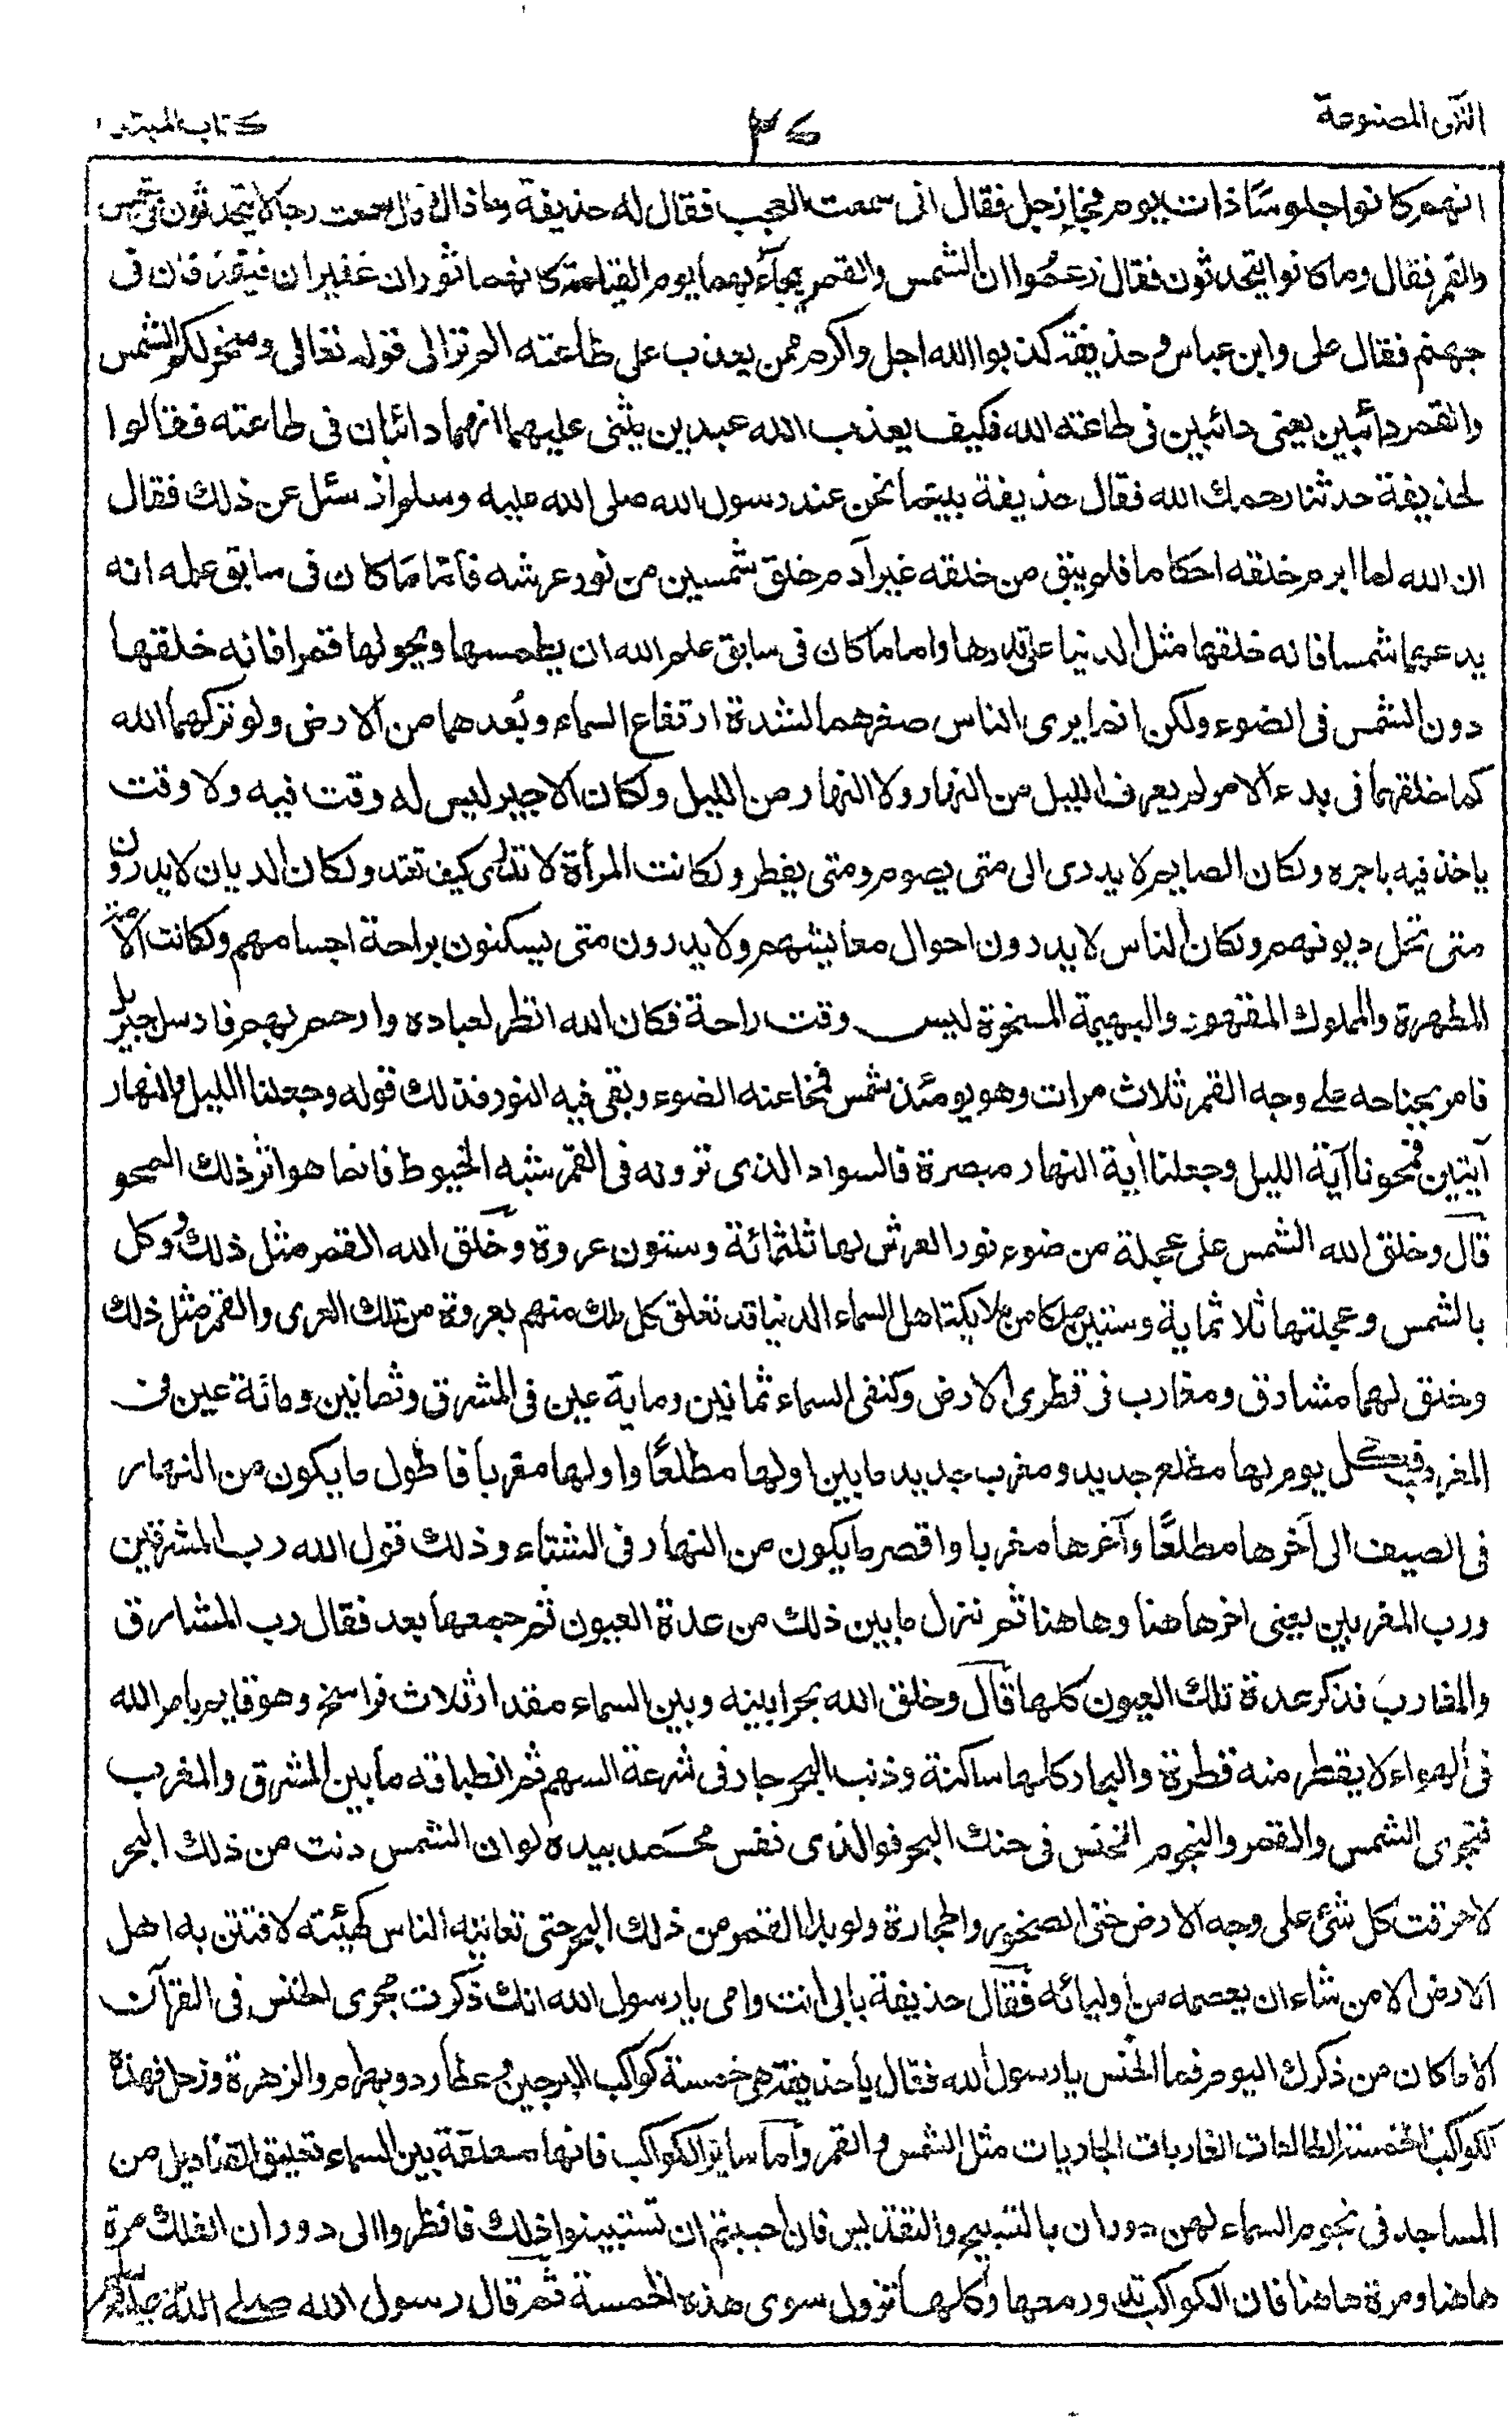 اللآلى المصنوعة
٣٤
كتاب المبتدا
انهم كانوا جلوسًا ذات يوم فجاء رجل فقال انى سمعت العجب فقال له حذيفة وما ذاك قال سمعت رجالا يتحدثون فى الشمس
والقمر فقال وما كانوا يتحدثون فقال زعموا ان الشمس والقمر يجاء بهما يوم القيامة كانهما ثوران عفيران فيقذفان فى
جهنم فقال على وابن عباس وحذيفة كذبوا الله اجل واكرم من يعذب على طاعته الم تر الى قوله تعالى وسخر لكم الشمس
والقمر دائبين يعنى دائبين فى طاعة الله فكيف يعذب الله عبدين يثنى عليهما انهما دائبان فى طاعته فقالوا
لحذيفة حدثنا رحمك الله فقال حذيفة بينما نحن عند رسول الله صلى الله عليه وسلم اذ سئل عن ذلك فقال
ان الله لما ابرم خلقه احكاما فلم يبق من خلقه غير آدم خلق شمسين من نور عرشه فأمّا ما كان فى سابق علمه انه
يدعها شمسا فانه خلقها مثل الدنيا على قدرها واما ما كان فى سابق علم الله ان يطمسها ويحولها قمرا فانه خلقها
دون الشمس فى الضوء ولكن انما يرى الناس صغرهما لشدة ارتفاع السماء وبُعدهما من الارض ولو تركهما الله
كما خلقهما فى بدء الامر لم يعرف الليل من النهار ولا النهار من الليل ولكان الاجير ليس له وقت فيه ولا وقت
ياخذ فيه باجره ولكان الصايم لا يدرى الى متى يصوم ومتى يفطر ولكانت المرأة لا تدرى كيف تعتد ولكان الديان لا يدرون
متى تحل ديونهم ولكان الناس لا يدرون احوال معايشهم ولا يدرون متى يسكنون براحة اجسامهم ولكانت الامة
المطهرة والمملوك المقهور والبهيمة المسخرة ليس وقت راحة فكان الله انظر لعباده وارحم بهم فارسل جبريل
فامر بجناحه على وجه القمر ثلاث مرات وهو يومئذ شمس فمحا عنه الضوء وبقى فيه النور فذلك قوله وجعلنا الليل والنهار
آيتين فمحونا آية الليل وجعلنا اٰية النهار مبصرة فالسواد الذى ترونه فى القمر شبه الخيوط فانما هو اثر ذلك المحو
قال وخلق الله الشمس على عجلة من ضوء نور العرش لها ثلثمائة وستون عروة وخلق الله القمر مثل ذلك ووكل
بالشمس وعجلتها ثلاثماية وستين ملكا من ملايكة اهل السماء الدنيا قد تعلق كل ملك منهم بعروة من تلك العرى والقمر مثل ذلك
وخلق لهما مشارق ومغارب فى قطرى الارض وكنفى السماء ثمانين وماية عين فى المشرق وثمانين ومائة عين فى
المغرب فكل يوم لها مطلع جديد ومغرب جديد ما بين اولها مطلعًا واولها مغربا فاطول ما يكون من النهار
فى الصيف الى آخرها مطلعًا وآخرها مغربا واقصر ما يكون من النهار فى الشتاء وذلك قول الله رب المشرقين
ورب المغربين يعنى اخرها هنا وهاهنا ثم نزل ما بين ذلك من عدة العيون ثم جمعها بعد فقال رب المشارق
والمغارب فذكر عدة تلك العيون كلها قال وخلق الله بحرا بينه وبين السماء مقدار ثلاث فراسخ وهو قايم بامر الله
فى الهواء لا يقطر منه قطرة والبحار كلها ساكنة وذنب البحر جار فى سرعة السهم ثم انطباقه ما بين المشرق والمغرب
فتجرى الشمس والقمر والنجوم الخنس فى حنك البحر فوالذى نفس محمد بيده لو ان الشمس دنت من ذلك البحر
لاحرقت كل شئ على وجه الارض حتى الصخور والحجارة ولو بدا القمر من ذلك البحر حتى تعاينه الناس كهيئته لافتتن به اهل
الارض الا من شاء ان يعصمه من اوليائه فقال حذيفة بابى انت وامى يا رسول الله انك ذكرت مجرى الخنس فى القرآن
الا ما كان من ذكرك اليوم فما الخنس يا رسول الله فقال يا حذيفة هى خمسة كواكب البرجيس وعطارد وبهرام والزهرة وزحل فهذه
الكواكب الخمسة الطالعات الغاربات الجاريات مثل الشمس والقمر وأما ساير الكواكب فانها معلقة بين السماء تعليق القناديل من
المساجد فى نجوم السماء لهن دوران بالتسبيح والتقديس فان احببتم ان تستبينوا ذلك فانظروا الى دوران الفلك مرة
هاهنا ومرة هاهنا فان الكواكب تدور معها وكلها تزول سوى هذه الخمسة ثم قال رسول الله صلى الله عليه وسلم